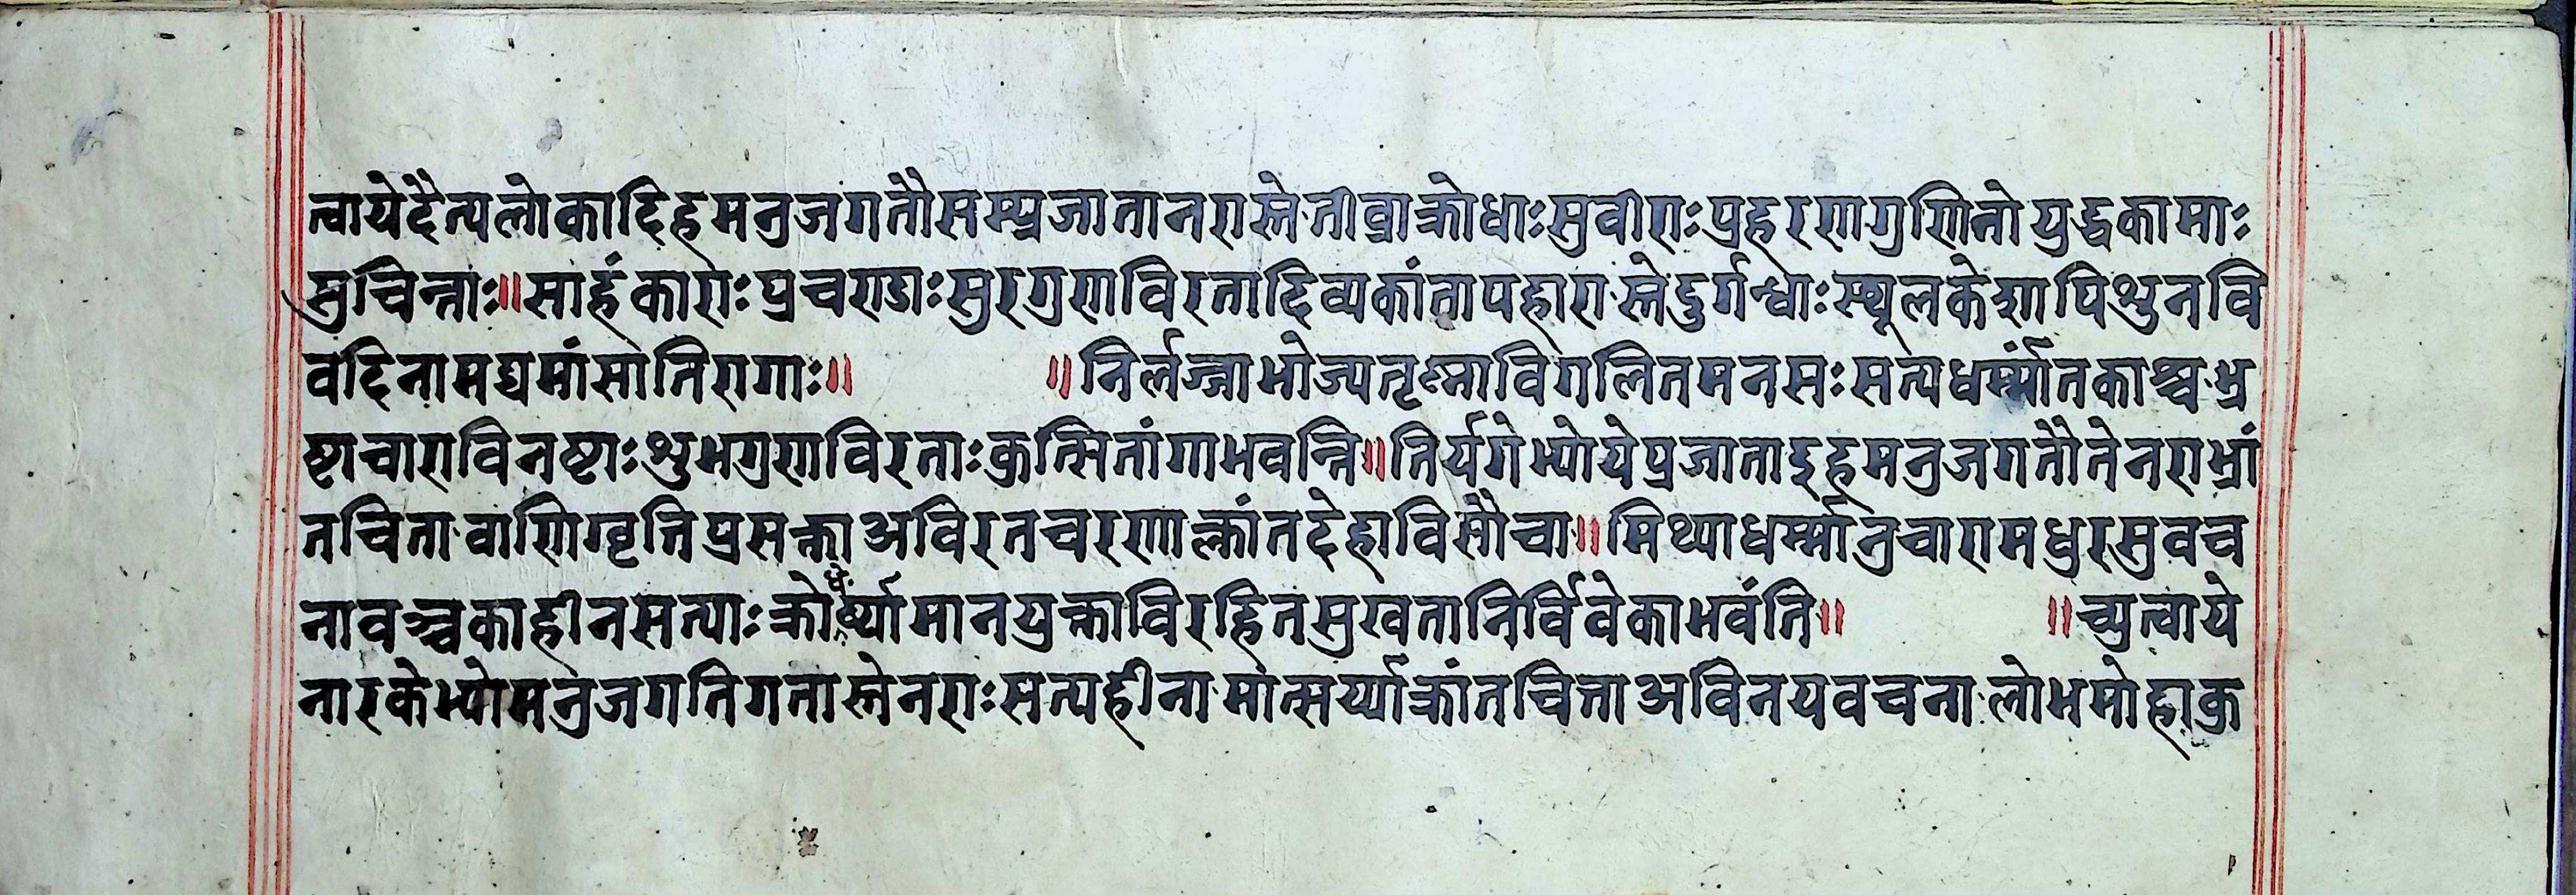 त्वायेदैत्यलोकादिहमनुजगतौसम्प्रजातानरास्तेतीव्राक्रोधाःसुवीराःप्रहरणगुणिनोयुद्धकामाः
सुचिन्नाः॥साहंकाराःप्रचण्डाःसुरगुणविरतादिव्यकांतापहारास्तेदुर्गन्धाःस्थूलकेशापिशुनवि
वदिनामद्यमांसातिरागाः॥ ॥निर्लज्जाभोज्यतृष्नाविगलितमनसःसत्यधर्म्मांतकाश्चभ्र
ष्टाचाराविनष्टाःशुभगुणविरताःकुत्सितांगाभवन्ति॥तिर्यगेभ्योयेप्रजाताइहमनुजगतौतेनराभ्रां
तचितावाणिग्वृत्तिप्रसक्ताअविरतचरणाक्लांतदेहाविसौचा॥मिथ्याधर्म्मानुचारामधुरसुवच
नावञ्चकाहीनसत्याःक्रोधेर्ष्यामानयुक्ताविरहितसुखतानिर्विवेकाभवंति॥ ॥च्युत्वाये
नारकेभ्योमनुजगतिगतास्तेनराःसत्यहीनामात्सर्य्याक्रांतचित्ताअविनयवचनालोभमोहाकु